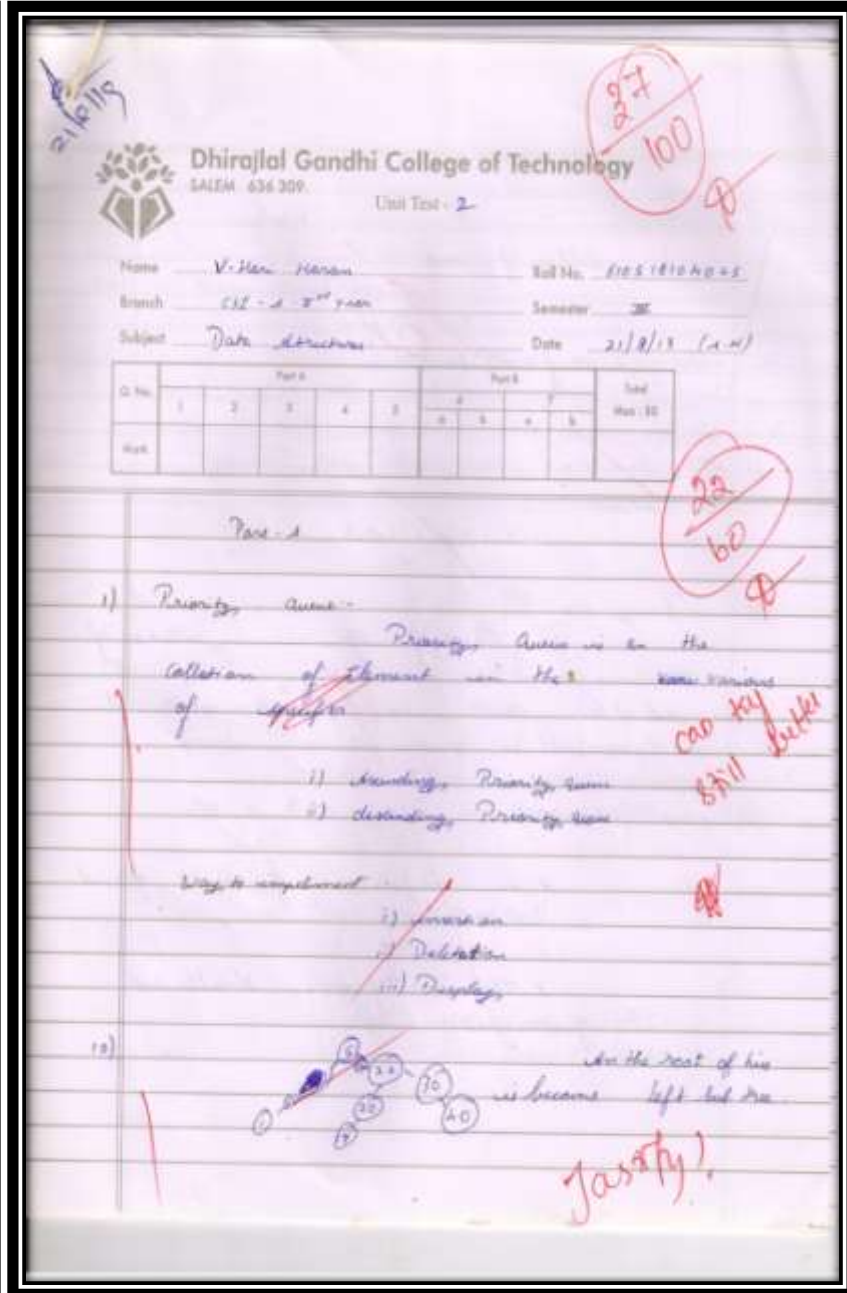 37
100
Dhirajlal Gandhi College of Technology
SALEM 636 309.
Unit Test - 2
Name V. Hari Haran
Roll No.
Branch
Semester III
Subject Data structures
Date 21/8/19 (A.N)
Q. No. Part A Part B Total
1 2 3 4 5 6 7 Max : 50
a b a b
Mark
22
60
Part - A
1) Priority Queue :-
Priority Queue is an the
collection of Element in the various
of
can try
still better
i) Ascending Priority queue
ii) descending Priority queue
Way to
i) insertion
ii) Deletation
iii) Display
is become left sub tree.
5
22
30
20
40
1
Jastify!